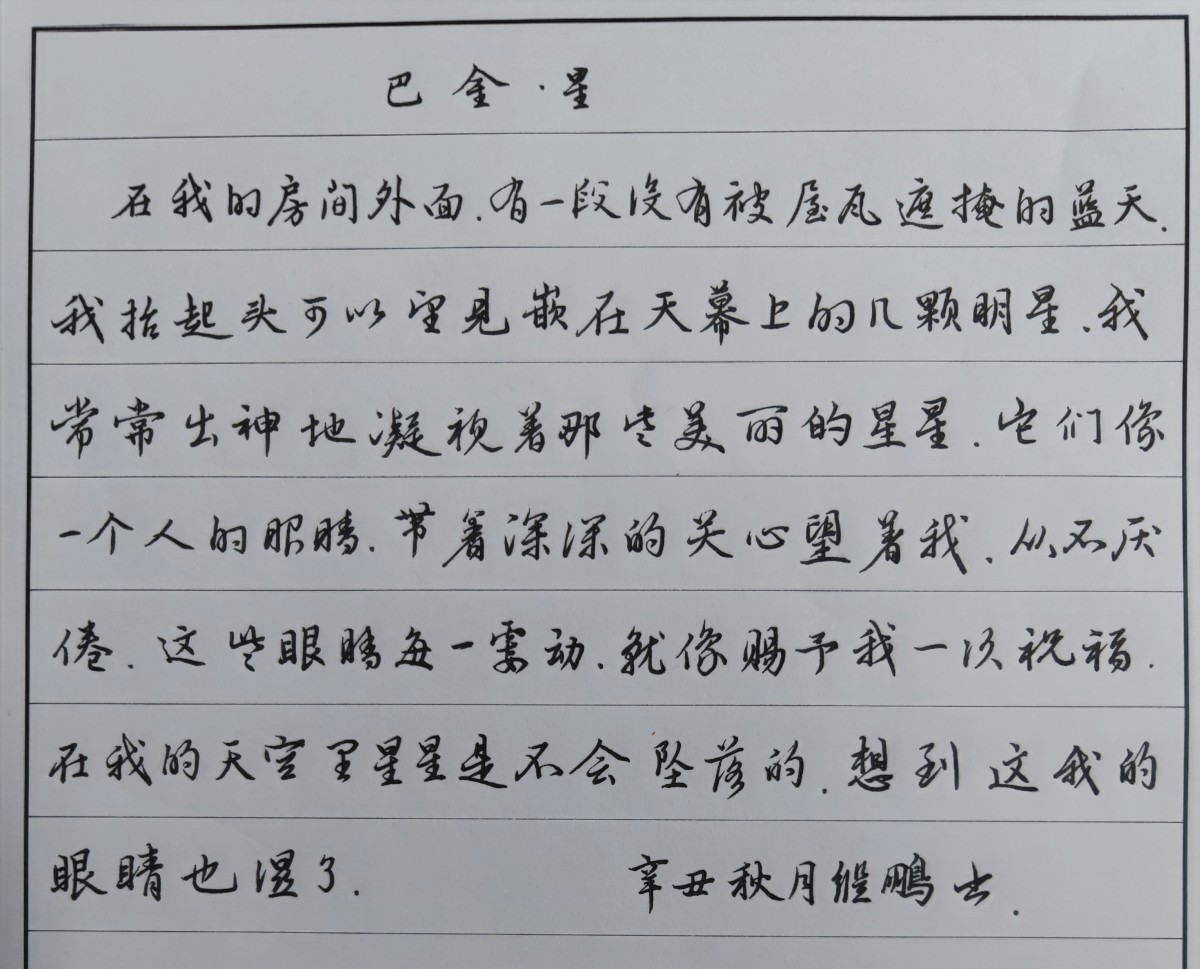 巴金·星
在我的房间外面.有一段没有被屋瓦遮掩的蓝天.
我抬起头可以望见嵌在天幕上的几颗明星.我
常常出神地凝视着那些美丽的星星.它们像
一个人的眼睛.带着深深的关心望着我.从不厌
倦.这些眼睛每一霎动.就像赐予我一次祝福.
在我的天空里星星是不会坠落的.想到这我的
眼睛也湿了.
辛丑秋月继鹏书.